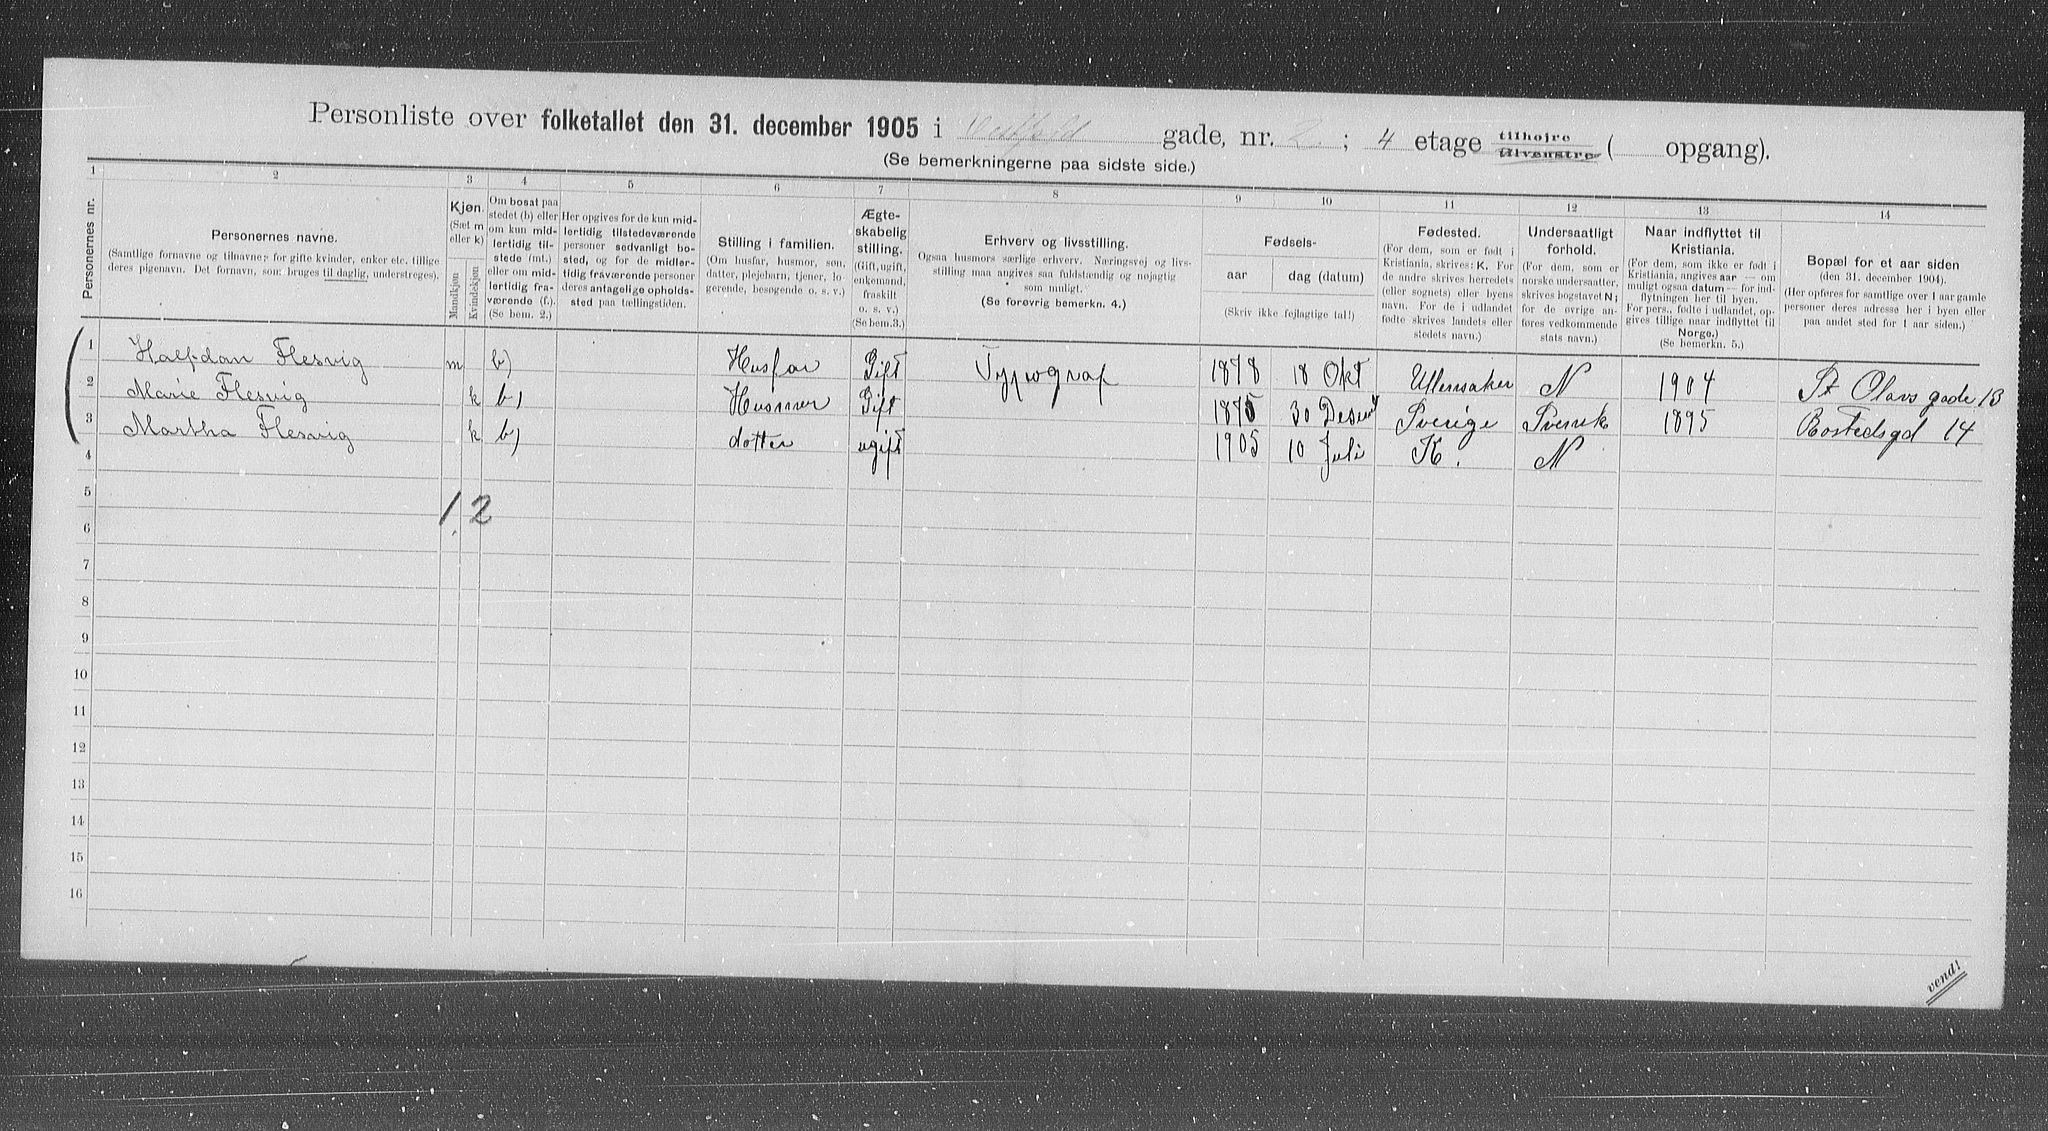 Personliste over folketallet den 31. december 1905 i Vestfold gade, nr. 2. ; 4 etage tilhøjre tilvenstre ( opgang).
(Se bemerkningerne paa sidste side.)
1 2 3 4 5 6 7 8 9 10 11 12 13 14
Personernes nr.
Personernes navne.
(Samtlige fornavne og tilnavne; for gifte kvinder, enker etc. tillige
deres pigenavn. Det fornavn, som bruges til daglig, understreges).
Kjøn.
(Sæt m
eller k)
Mandkjøn
Kvindekjøn
Om bosat paa
stedet (b) eller
om kun mid-
lertidig til-
stede (mt.)
eller om mid-
lertidig fra-
værende (f.).
(Se bem. 2.)
Her opgives for de kun mid-
lertidig tilstedeværende
personer sedvanligt bo-
sted, og for de midler-
tidig fraværende personer
deres antagelige opholds-
sted paa tællingstiden.
Stilling i familien.
(Om husfar, husmor, søn,
datter, plejebarn, tjener, lo-
gerende, besøgende o. s. v.)
Ægte-
skabelig
stilling.
(Gift, ugift,
enkemand,
fraskilt
o. s. v.)
(Se bem. 3.)
Erhverv og livsstilling.
Ogsaa husmors særlige erhverv. Næringsvej og livs-
stilling maa angives saa fuldstændig og nøjagtig
som muligt.
(Se forøvrig bemerkn. 4.)
Fødsels-
aar
dag (datum)
(Skriv ikke fejlagtige tal!)
Fødested.
(For dem, som er født i
Kristiania, skrives: K. For
de andre skrives herredets
(eller sognets) eller byens
navn. For de i udlandet
fødte skrives landets eller
stedets navn.)
Undersaatligt
forhold.
(For dem, som er
norske undersaatter,
skrives bogstavet N;
for de øvrige an-
føres vedkommende
stats navn.)
Naar indflyttet til
Kristiania.
(For dem, som ikke er født i
Kristiania, angives aar — om
muligt ogsaa datum — for ind-
flytningen her til byen.
For pers., fødte i udlandet, op-
gives tillige naar indflyttet til
Norge.)
(Se bemerkn. 5.)
Bopæl for et aar siden
(den 31. december 1904).
(Her opføres for samtlige over 1 aar gamle
personer deres adresse her i byen eller
paa andet sted for 1 aar siden.)
1 Halfdan Flesvig m b) Husfar Gift Typograf 1878 18 Okt Ullensaker N 1904 St Olavs gade 13
2 Marie Flesvig k b) Husmor Gift 1875 30 Desem Sverige Svensk 1895 Bostedsgd 14
3 Martha Flesvig k b) dotter ugift 1905 10 Juli K. N
4
5
1 2
6
7
8
9
10
11
12
13
14
15
16
vend!